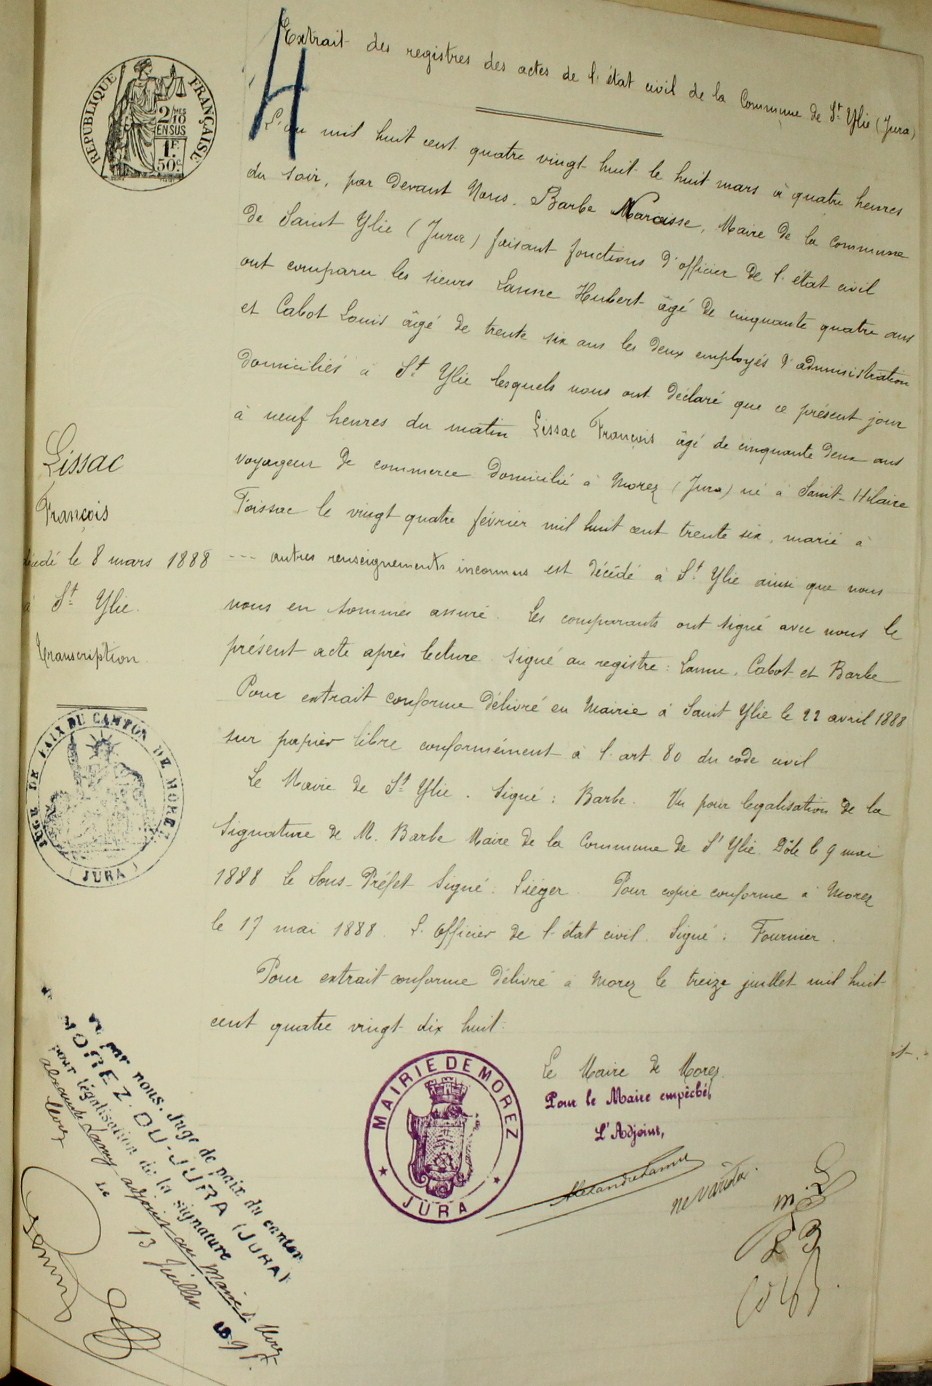 4
Extrait des registres des actes de l'état civil de la Commune de St Ylie (Jura)
RÉPUBLIQUE FRANÇAISE
2/10 EN SUS
1F 50c
L'an mil huit cent quatre vingt huit le huit mars à quatre heures
du soir, par devant Nous, Barbe Narcisse, Maire de la Commune
de Saint Ylie (Jura) faisant fonctions d'officier de l'état civil
ont comparu les sieurs Lanne Hubert âgé de cinquante quatre ans
et Cabot Louis âgé de trente six ans les deux employés d'administration
domiciliés à St Ylie lesquels nous ont déclaré que ce présent jour
à neuf heures du matin Lissac François âgé de cinquante deux ans
voyageur de commerce domicilié à Morez (Jura) né à Saint-Hilaire
Foissac le vingt quatre février mil huit cent trente six, marié à
--- autres renseignements inconnus est décédé à St Ylie ainsi que nous
nous en sommes assuré. Les comparants ont signé avec nous le
présent acte après lecture. Signé au registre : Lanne, Cabot et Barbe
Pour extrait conforme délivré en Mairie à Saint Ylie le 22 avril 1888
sur papier libre conformément à l'art 80 du code civil
Le Maire de St Ylie. Signé : Barbe. Vu pour legalisation de la
signature de M. Barbe Maire de la Commune de St Ylie. Dôle le 9 mai
1888 Le Sous-Préfet Signé : Siéger. Pour copie conforme à Morez
le 17 mai 1888. L'officier de l'état civil. Signé : Fournier.
Pour extrait conforme délivré à Morez le treize juillet mil huit
cent quatre vingt dix huit.
Lissac
François
décédé le 8 mars 1888
à St Ylie.
Transcription.
JUGE DE PAIX DU CANTON DE MOREZ
(JURA)
Le Maire de Morez.
Pour le Maire empêché,
L'Adjoint,
MAIRIE DE MOREZ
JURA
Alexandre Lamy
ne varietur.
Vu par nous, Juge de paix du canton
MOREZ-DU-JURA (JURA)
pour légalisation de la signature
Alexandre Lamy adjoint au Maire de Morez
Morez le 13 Juillet 1898.